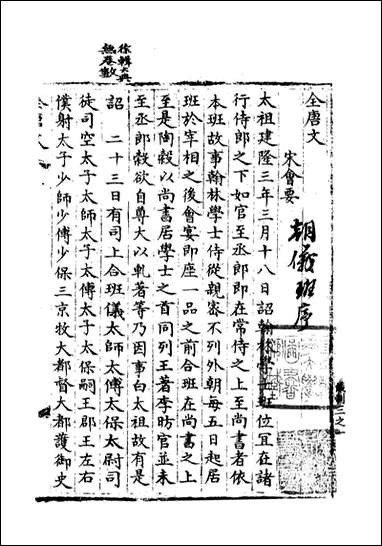 徐輯大典
無卷數
全唐文
宋會要
朝儀班序
太祖建隆三年三月十八日詔翰林學士班位宜在諸
行侍郎之下如官至丞郎即在常侍之上至尚書者依
本班故事翰林學士侍從親密不列外朝每五日起居
班於宰相之後會宴即座一品之前合班在尚書之上
至是陶穀以尚書居學士之首同列王著李昉官並未
至丞郎穀欲自尊大以軋著等乃因事白太祖故有是
詔　二十三日有司上合班儀太師太傅太保太尉司
徒司空太子太師太子太傅太子太保嗣王郡王左右
僕射太子少師少傅少保三京牧大都督大都護御史
全唐文
儀制三之一